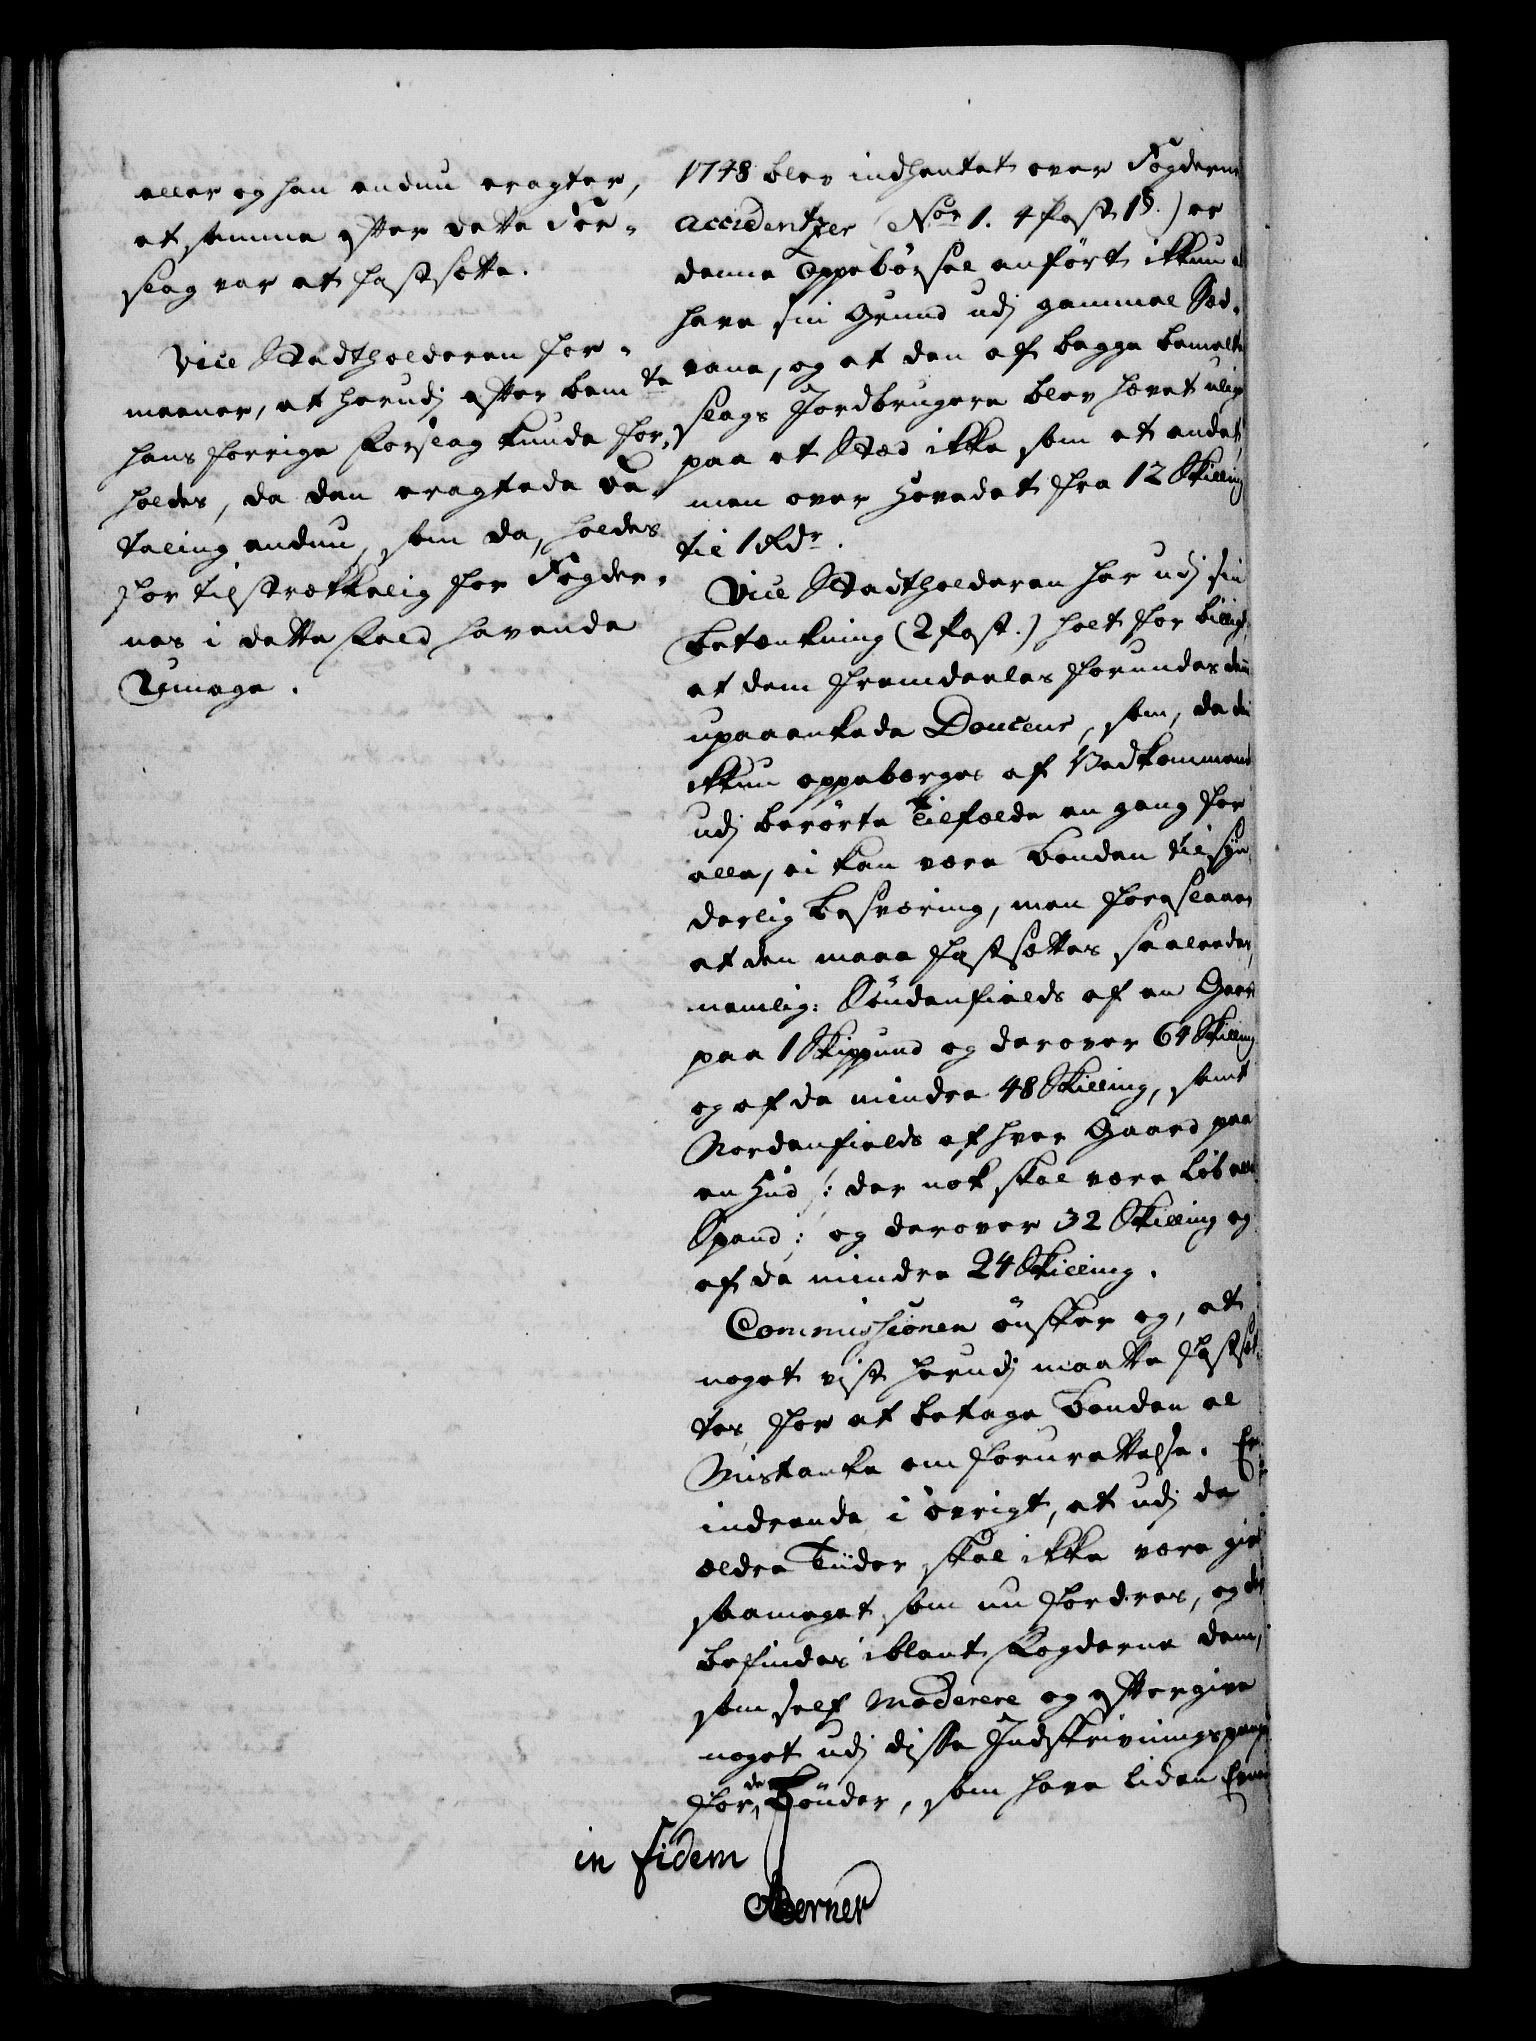 eller og han endnu eragter,
at samme efter dette For-
slag var at fastsette.
Vice Stadtholderen for-
meener, at herudj efter bemte
hans forrige Forslag kunde for-
holdes, da den eragtede Be-
taling endnu, som da, holdes
for tilstrækkelig for Fogder-
nes i dette Fald havende
Umage.
1748 blev indhentet over Fogderne
accidentzer (No 1. 4 Post 1§.) er
denne Oppebørsel anført ikkun at
have sin Grund udj gammel Sæd-
vane, og at den af begge bemelte
slags Jordbrugere blev hævet ulige
paa et Stæd ikke som et andet,
men over Hovedet fra 12 Skilling
til 1 Rdr.
Vice Stadtholderen har udj sin
Betænkning (2 Post.) holt for billigt,
at dem fremdeeles forundes den
upaaankede Douceur, som, da den
ikkun oppebærges af Vedkommende
udj berørte Tilfælde en gang for
alle, ei kan være Bonden til syn-
derlig Besværing, men foreslaaer
at den maae fastsættes saaledes,
nemlig: Søndenfields af en Gaard
paa 1 Skippund og derover 64 Skilling
og af de mindre 48 Skilling, samt
Nordenfields af hver Gaard paa
en Hud /: der nok skal være Løb eller
Spand :/ og derover 32 Skilling og
af de mindre 24 Skilling.
Commissionen ønsker og, at
noget vist herudj maatte fastsæt-
tes, for at betage Bonden al
Mistanke om Forurettelse. Er-
indrende i øvrigt, at udj de
ældre Tiider skal ikke være givet
saameget, som nu fordres, og der
befindes iblant Fogderne dem,
som self moderere og eftergive
noget udj disse Indskrivningspenge
for de Bønder, som have liden Evne
in fidem
Berner